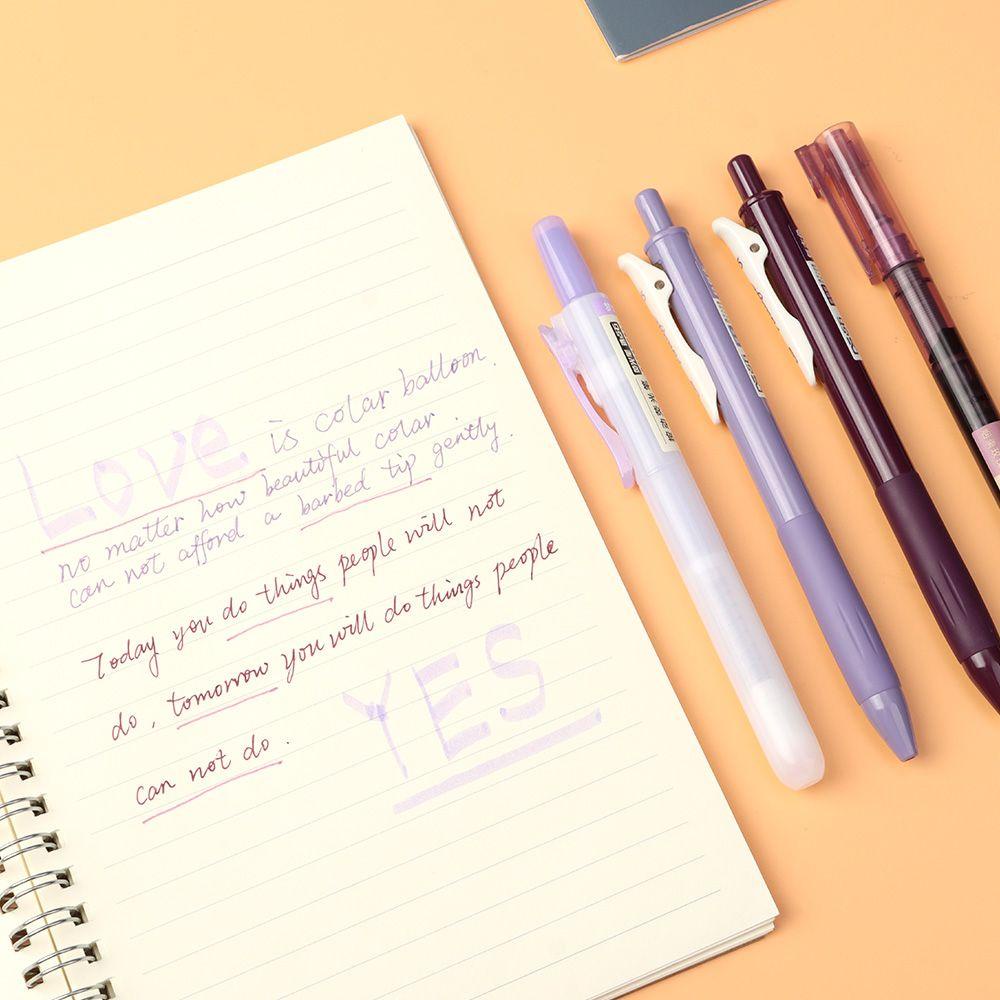 Love is colar balloon.
no matter how beautiful colar
can not afford a barbed tip gently.
Today you do things people will not
do, tomorrow you will do things people
can not do.
YES